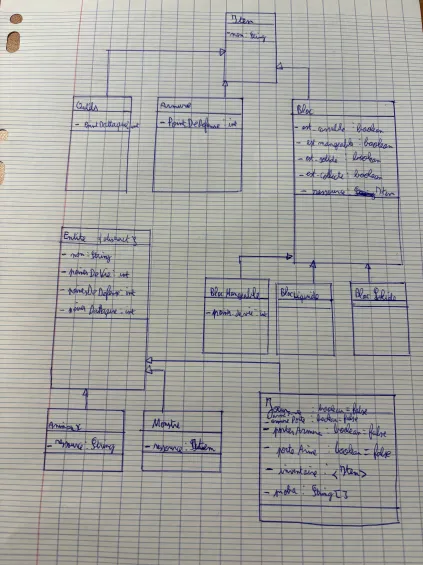 Item
- nom : String
Outils
- PointDattaque : int
Armure
- PointDeDefense : int
Bloc
- est-cassable : boolean
- est mangeable : boolean
- est-solide : boolean
- est-collecte : boolean
- ressource : Item
Entite {abstract}
- nom : String
- pointsDeVie : int
- pointsDeDefense : int
- pointsDattaque : int
Bloc Mangeable
- points de vie : int
BlocLiquide
Bloc Solide
Animal
- ressource : String
Monstre
- ressource : Item
: boolean = false
: boolean = false
- porterArmure : boolean = false
- porte Arme : boolean = false
- inventaire : <Item>
: String [ ]